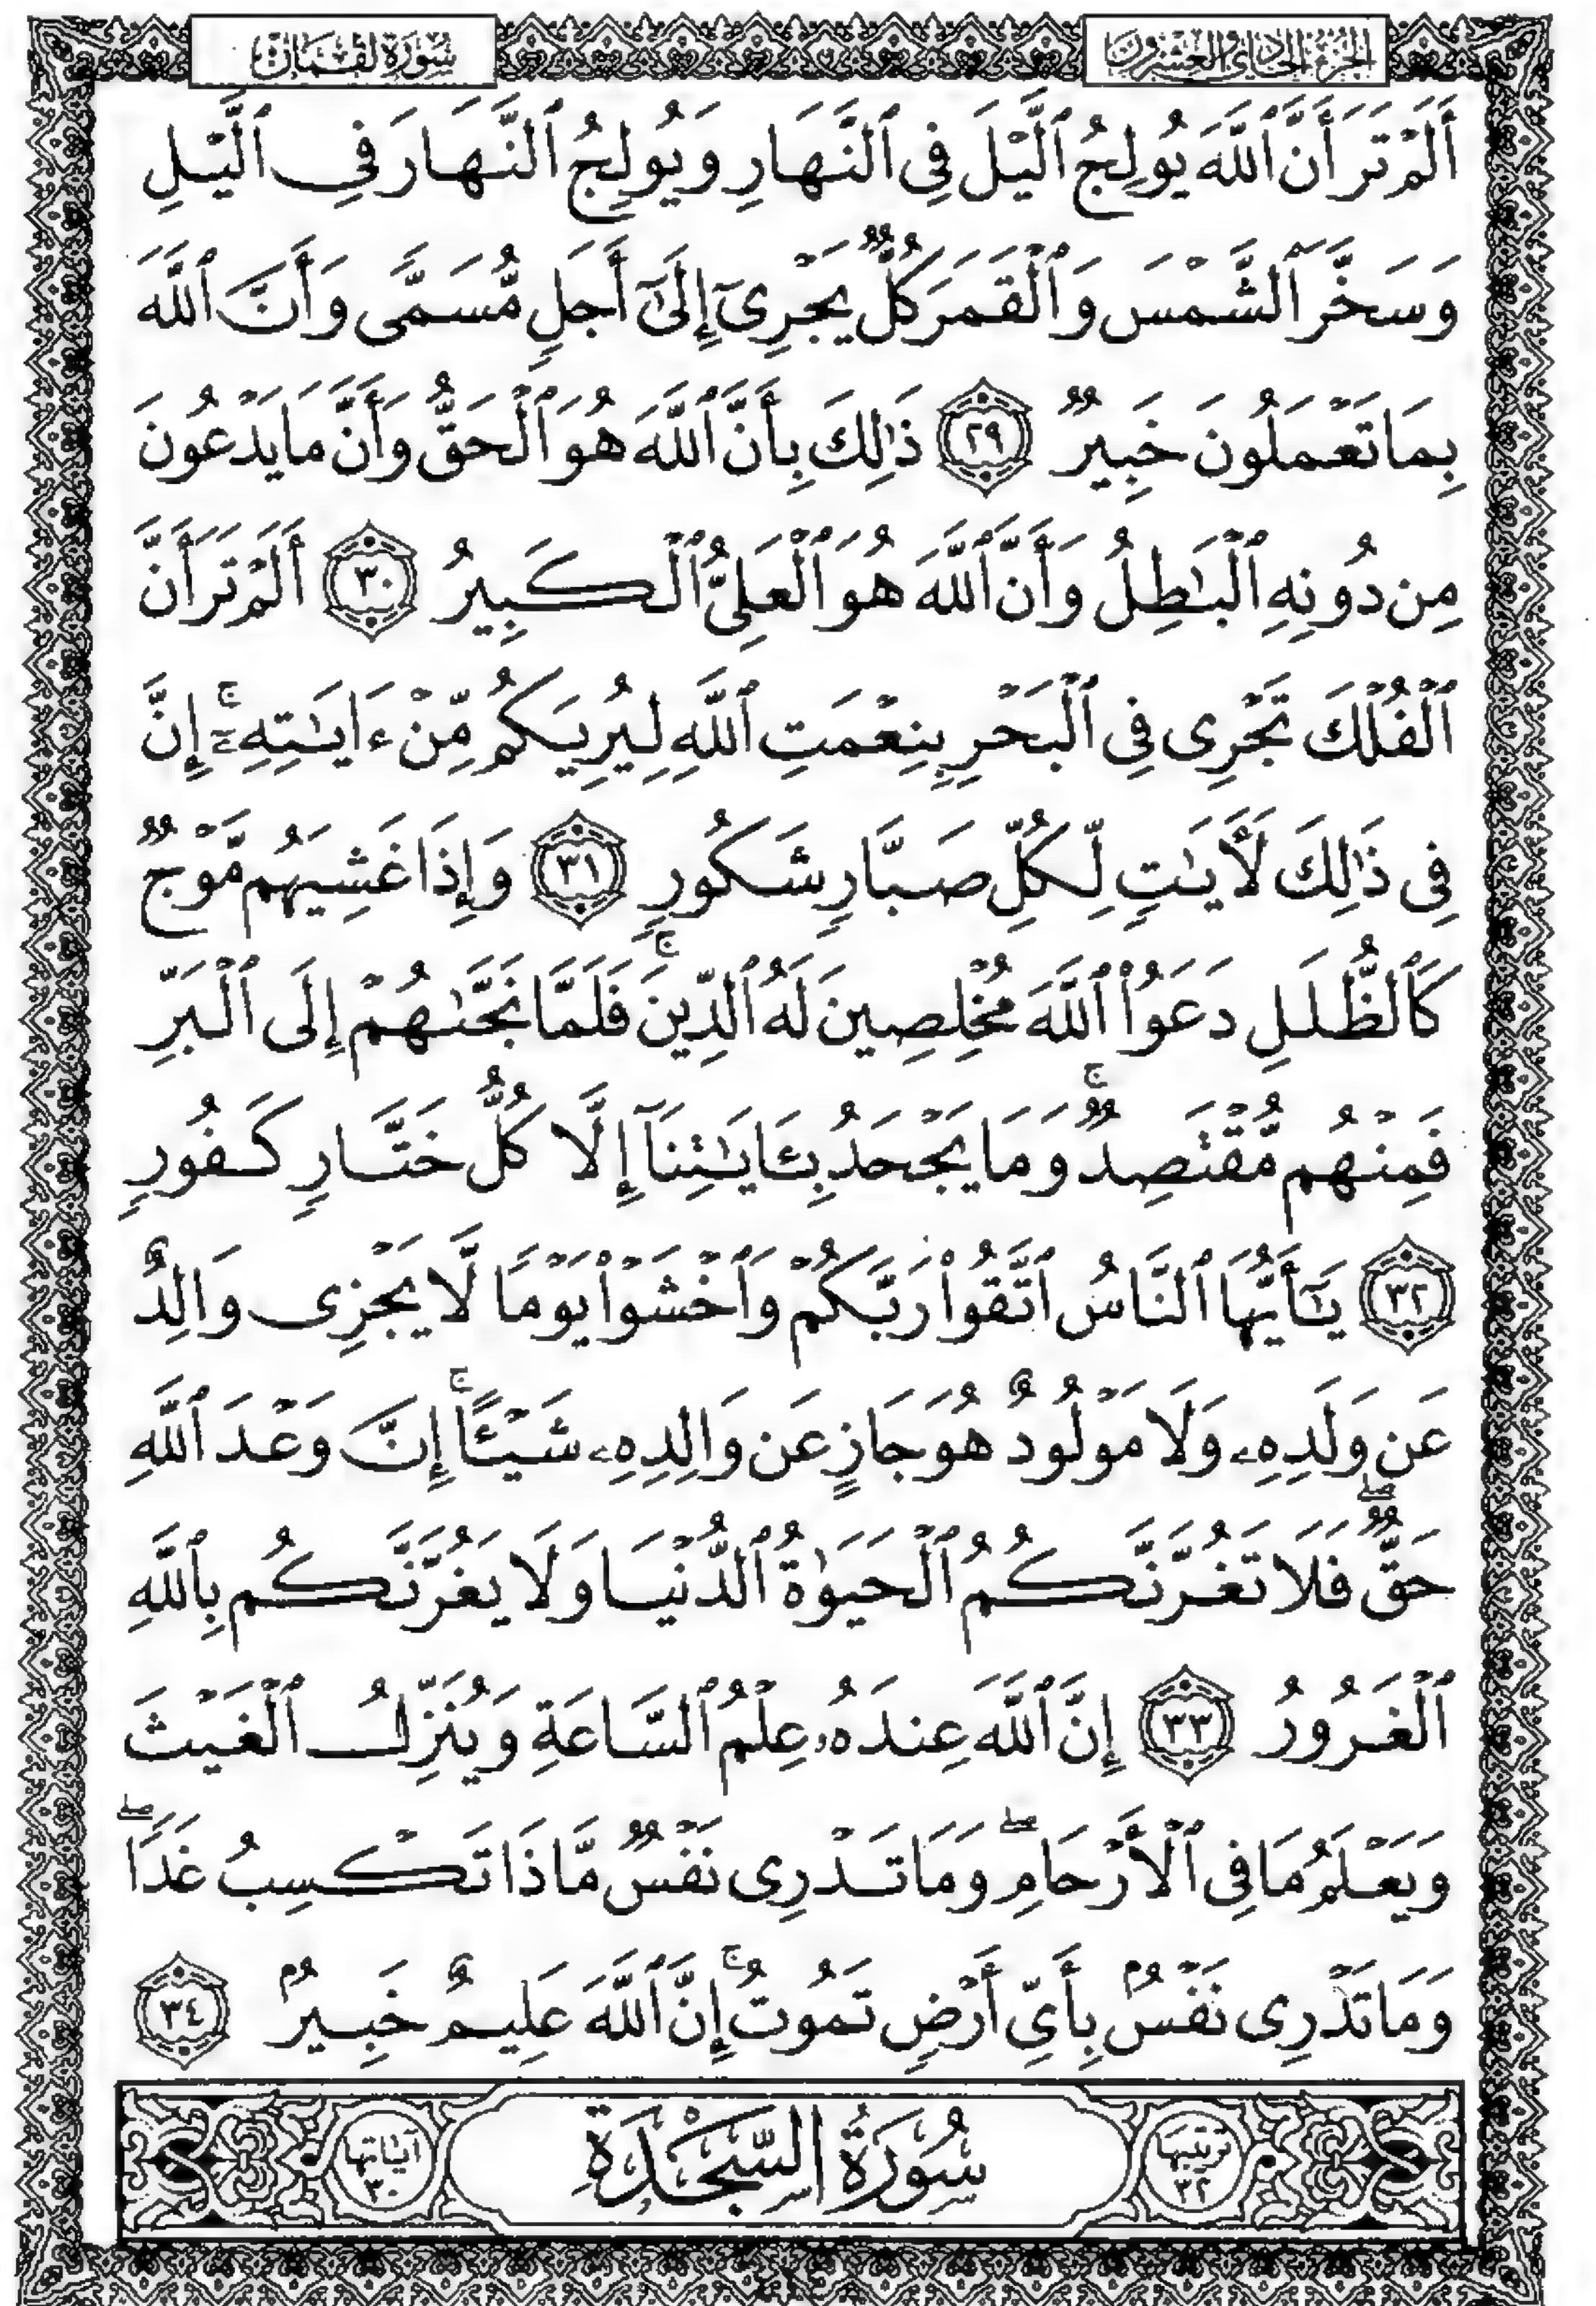 الجزء الحادي والعشرون
سورة لقمان
أَلَمْ تَرَ أَنَّ ٱللَّهَ يُولِجُ ٱلَّيْلَ فِى ٱلنَّهَارِ وَيُولِجُ ٱلنَّهَارَ فِى ٱلَّيْلِ
وَسَخَّرَ ٱلشَّمْسَ وَٱلْقَمَرَ كُلٌّ يَجْرِىٓ إِلَىٰٓ أَجَلٍ مُّسَمًّى وَأَنَّ ٱللَّهَ
بِمَا تَعْمَلُونَ خَبِيرٌ ٢٩ ذَٰلِكَ بِأَنَّ ٱللَّهَ هُوَ ٱلْحَقُّ وَأَنَّ مَا يَدْعُونَ
مِن دُونِهِ ٱلْبَٰطِلُ وَأَنَّ ٱللَّهَ هُوَ ٱلْعَلِىُّ ٱلْكَبِيرُ ٣٠ أَلَمْ تَرَ أَنَّ
ٱلْفُلْكَ تَجْرِى فِى ٱلْبَحْرِ بِنِعْمَتِ ٱللَّهِ لِيُرِيَكُم مِّنْ ءَايَٰتِهِۦٓ ۚ إِنَّ
فِى ذَٰلِكَ لَأَيَٰتٍ لِّكُلِّ صَبَّارٍ شَكُورٍ ٣١ وَإِذَا غَشِيَهُم مَّوْجٌ
كَٱلظُّلَلِ دَعَوُا۟ ٱللَّهَ مُخْلِصِينَ لَهُ ٱلدِّينَ ۚ فَلَمَّا نَجَّىٰهُمْ إِلَى ٱلْبَرِّ
فَمِنْهُم مُّقْتَصِدٌ ۚ وَمَا يَجْحَدُ بِـَٔايَٰتِنَآ إِلَّا كُلُّ خَتَّارٍ كَفُورٍ
٣٢ يَٰٓأَيُّهَا ٱلنَّاسُ ٱتَّقُوا۟ رَبَّكُمْ وَٱخْشَوْا۟ يَوْمًا لَّا يَجْزِى وَالِدٌ
عَن وَلَدِهِۦ وَلَا مَوْلُودٌ هُوَ جَازٍ عَن وَالِدِهِۦ شَيْـًٔا ۚ إِنَّ وَعْدَ ٱللَّهِ
حَقٌّ ۖ فَلَا تَغُرَّنَّكُمُ ٱلْحَيَوٰةُ ٱلدُّنْيَا وَلَا يَغُرَّنَّكُم بِٱللَّهِ
ٱلْغَرُورُ ٣٣ إِنَّ ٱللَّهَ عِندَهُۥ عِلْمُ ٱلسَّاعَةِ وَيُنَزِّلُ ٱلْغَيْثَ
وَيَعْلَمُ مَا فِى ٱلْأَرْحَامِ ۖ وَمَا تَدْرِى نَفْسٌ مَّاذَا تَكْسِبُ غَدًا ۖ
وَمَا تَدْرِى نَفْسٌۢ بِأَىِّ أَرْضٍ تَمُوتُ ۚ إِنَّ ٱللَّهَ عَلِيمٌ خَبِيرٌۢ ٣٤
ترتيبها ٣٢ سُورَةُ السَّجْدَةِ آياتها ٣٠